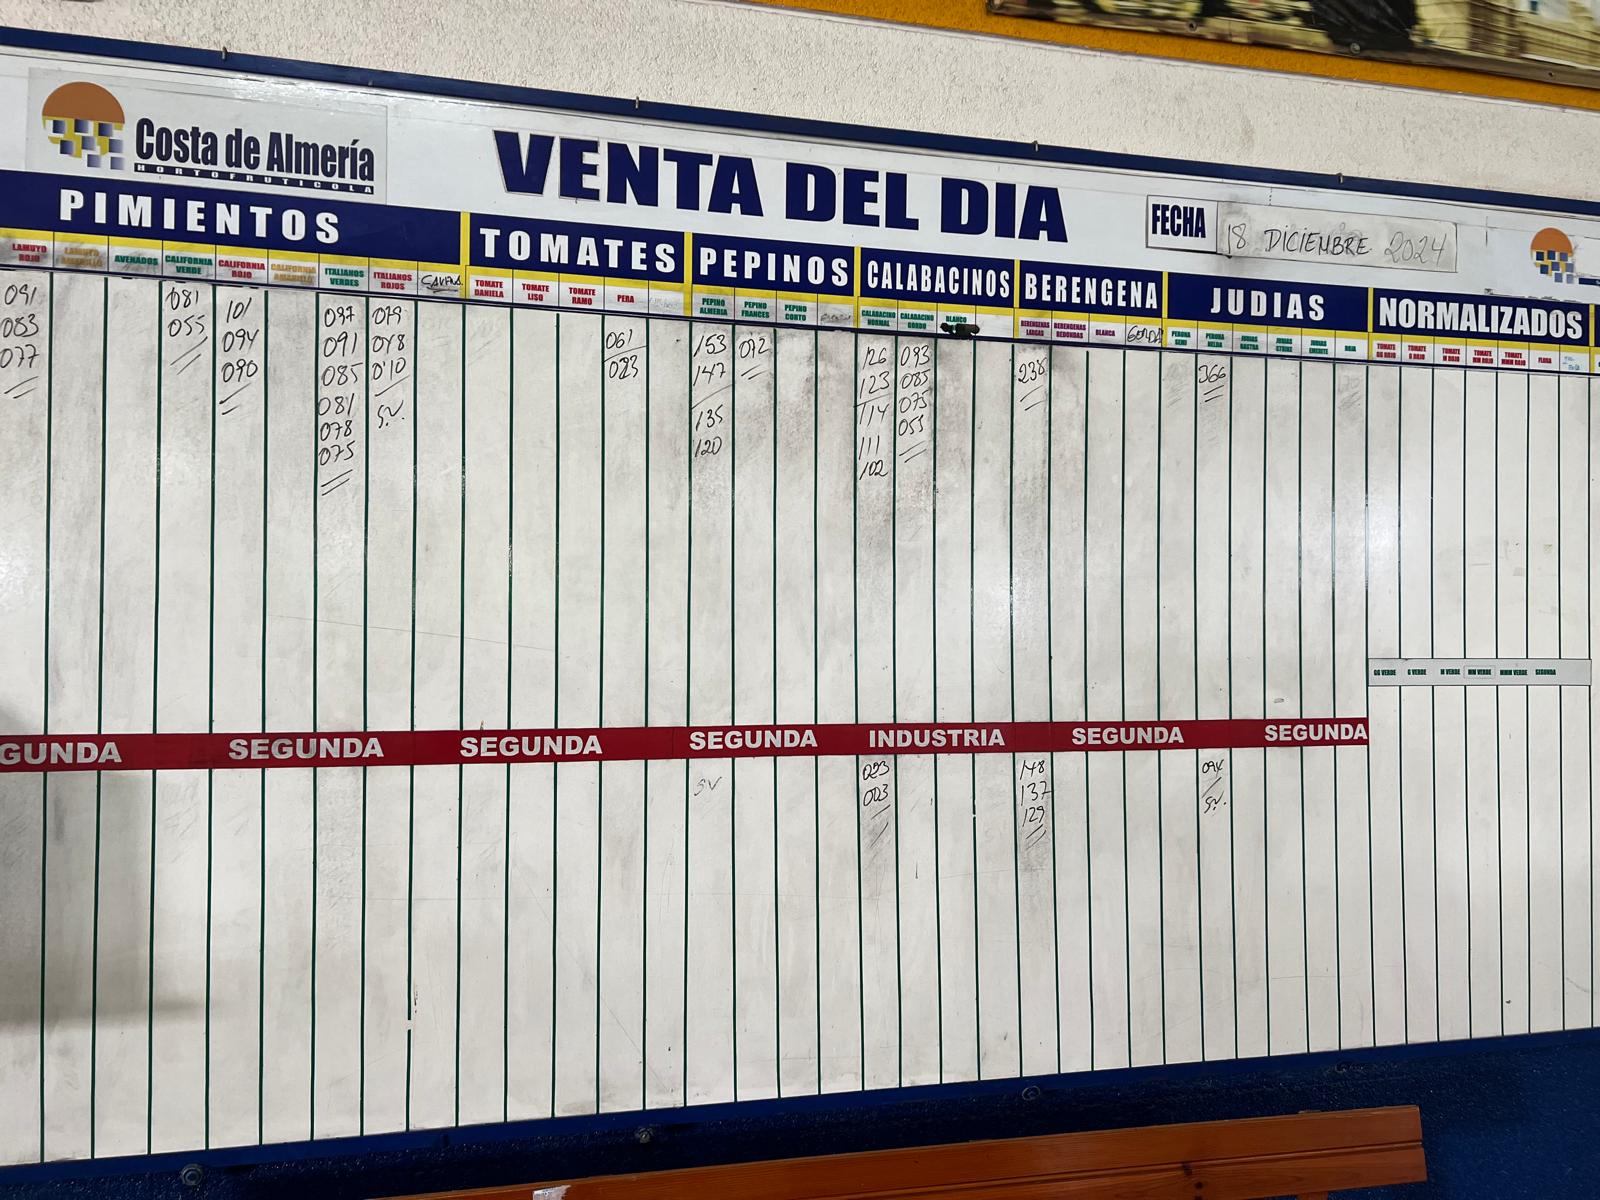 Costa de Almería
HORTOFRUTICOLA
VENTA DEL DIA
FECHA 18 DICIEMBRE 2024
PIMIENTOS TOMATES PEPINOS CALABACINOS BERENGENA JUDIAS NORMALIZADOS
LAMUYO ROJO
LAMUYO AMARILLO
AVENADOS
CALIFORNIA VERDE
CALIFORNIA ROJO
CALIFORNIA AMARILLO
ITALIANOS VERDES
ITALIANOS ROJOS
TOMATE DANIELA
TOMATE LISO
TOMATE RAMO
PERA
PEPINO ALMERIA
PEPINO FRANCES
PEPINO CORTO
CALABACINO NORMAL
CALABACINO GORDO
BLANCO
BERENGENAS LARGAS
BERENGENAS REDONDAS
BLANCA
GORDA
PERONA SEMI
PERONA HELDA
JUDIAS RASTRA
JUDIAS STRIKE
JUDIAS EMERITE
ROJA
TOMATE GG ROJO
TOMATE G ROJO
TOMATE M ROJO
TOMATE MM ROJO
TOMATE MMM ROJO
FLORA
091
083
077
081
055
101
094
090
097
091
085
081
078
075
079
048
010
S.V.
061
023
153
147
135
120
072
126
123
114
111
102
093
085
075
055
238
366
GG VERDE G VERDE M VERDE MM VERDE MMM VERDE SEGUNDA
GUNDA SEGUNDA SEGUNDA SEGUNDA INDUSTRIA SEGUNDA SEGUNDA
SV
023
003
148
137
129
094
S.V.